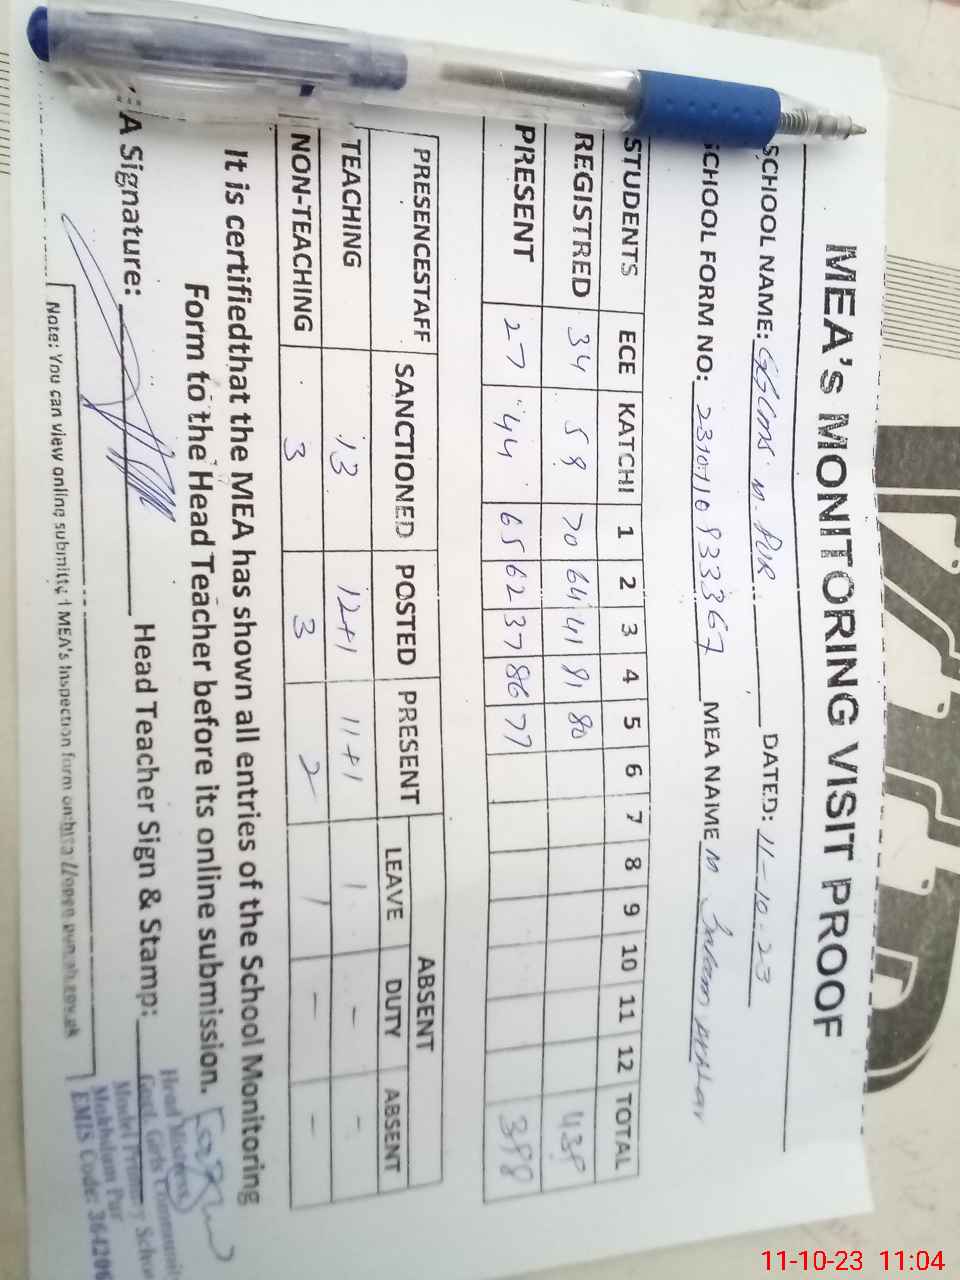 MEA's MONITORING VISIT PROOF
SCHOOL NAME: M. PUR DATED: 11-10-23
SCHOOL FORM NO: MEA NAME M
STUDENTS ECE KATCHI 1 2 3 4 5 6 7 8 9 10 11 12 TOTAL
REGISTRED 34 59 70 64 41 91 80 439
PRESENT 27 44 65 62 37 86 77 398
PRESENCESTAFF SANCTIONED POSTED PRESENT ABSENT
LEAVE DUTY ABSENT
TEACHING 13 12+1 11+1 1 - -
NON-TEACHING 3 3 2 1 - -
It is certifiedthat the MEA has shown all entries of the School Monitoring
Form to the Head Teacher before its online submission.
A Signature: Head Teacher Sign & Stamp:
Head Mistress
Govt. Girls Communit
Model Primary Schoo
Makhdum Pur
EMIS Code: 364206
Note: You can view online submitted MEA's Inspection form on:
11-10-23 11:04